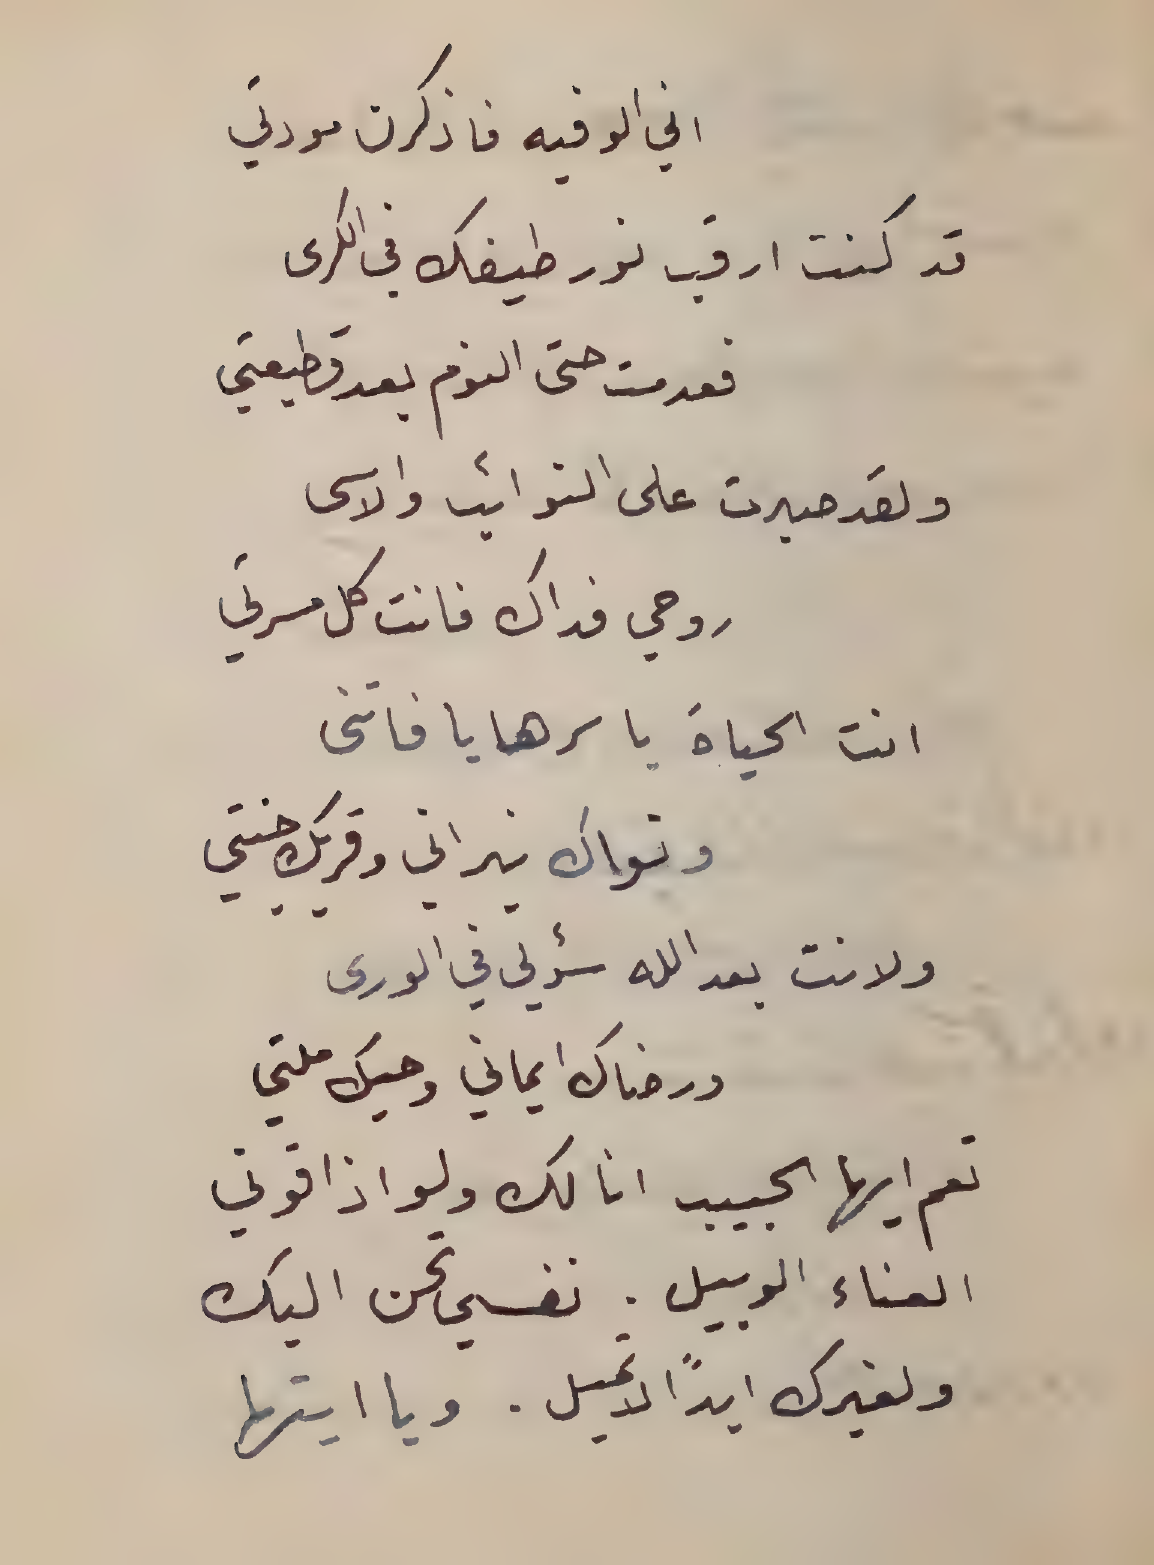 اني الوفيه فاذكرن مودتي
قد كنت ارقب نور طيفك في الكرى
فعدمت حتى النوم بعد قطيعتي
ولقد صبرت على النوائب والاسى
روحي فداك فانت كل مسرتي
انت الحياة يا سرها يا فاتني
ونواك نيراني وقربك جنتي
ولانت بعد الله سؤلي في الورى
ورضاك ايماني وحبك ملتي
نعم ايها الحبيب انا لك ولو اذاقوني
العناء الوبيل . نفسي تحن اليك
ولغيرك ابداً لا تميل . ويا ايتها